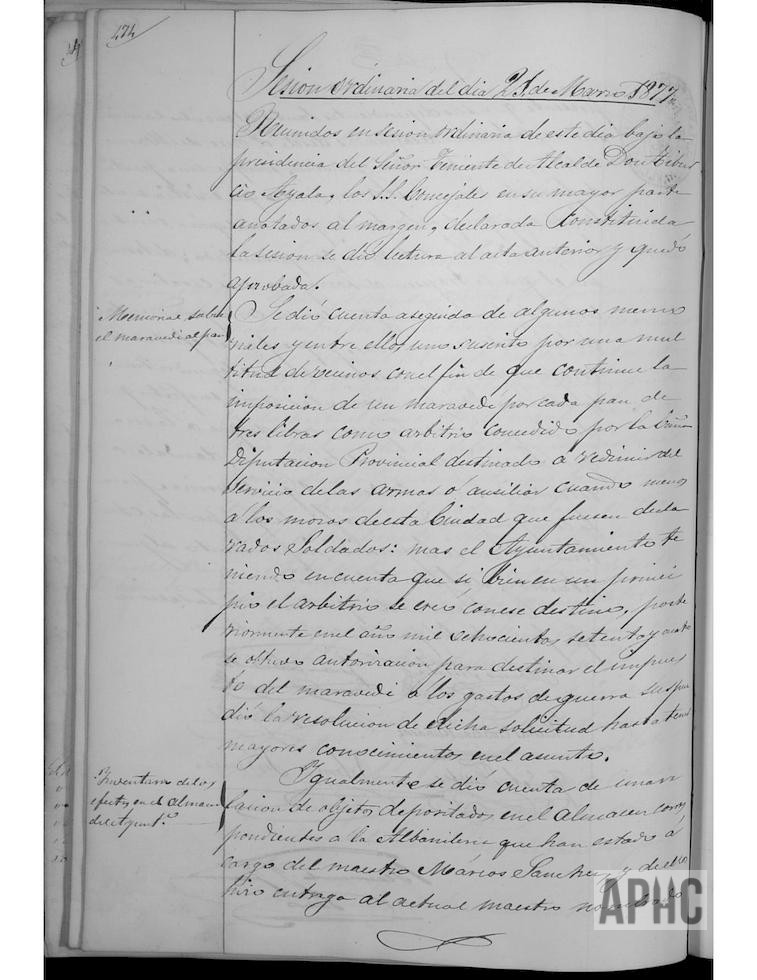 474
Sesion ordinaria del dia 21 de Marzo 1877
Reunidos en sesion ordinaria de este dia bajo la
presidencia del Señor Teniente de Alcalde Don Tibur
cio Ayala, los S.S. Concejales en su mayor parte
anotados al margen, declarada constituida
la sesion se dió lectura al acta anterior y quedó
aprobada.
Memorial sobre
el maravedi al pan
Se dió cuenta aseguida de algunos memo
riales y entre ellos uno suscrito por una mul
titud de vecinos con el fin de que continue la
imposicion de un maravedi por cada pan de
tres libras como arbitrio concedido por la Excma
Diputacion Provincial destinado a redimir del
servicio de las armas ó ausiliar cuando menos
á los mozos de esta Ciudad que fuesen decla
rados Soldados: mas el Ayuntamiento te
niendo en cuenta que si bien en un princi
pio el arbitrio se creó con ese destino, poste
riormente en el año mil ochocientos setenta y cuatro
se obtuvo autorizacion para destinar el impues
to del maravedi a los gastos de guerra suspen
dió la resolucion de dicha solicitud hasta tener
mayores conocimientos en el asunto.
Inventario de los
efectos en el Almacen
del Ayunt.º
Igualmente se dió cuenta de una re
lacion de objetos depositados en el almacen corres
pondientes a la Albanileria que han estado á
cargo del maestro Márcos Sanchez y de ello
hizo entrega al actual maestro
APHC